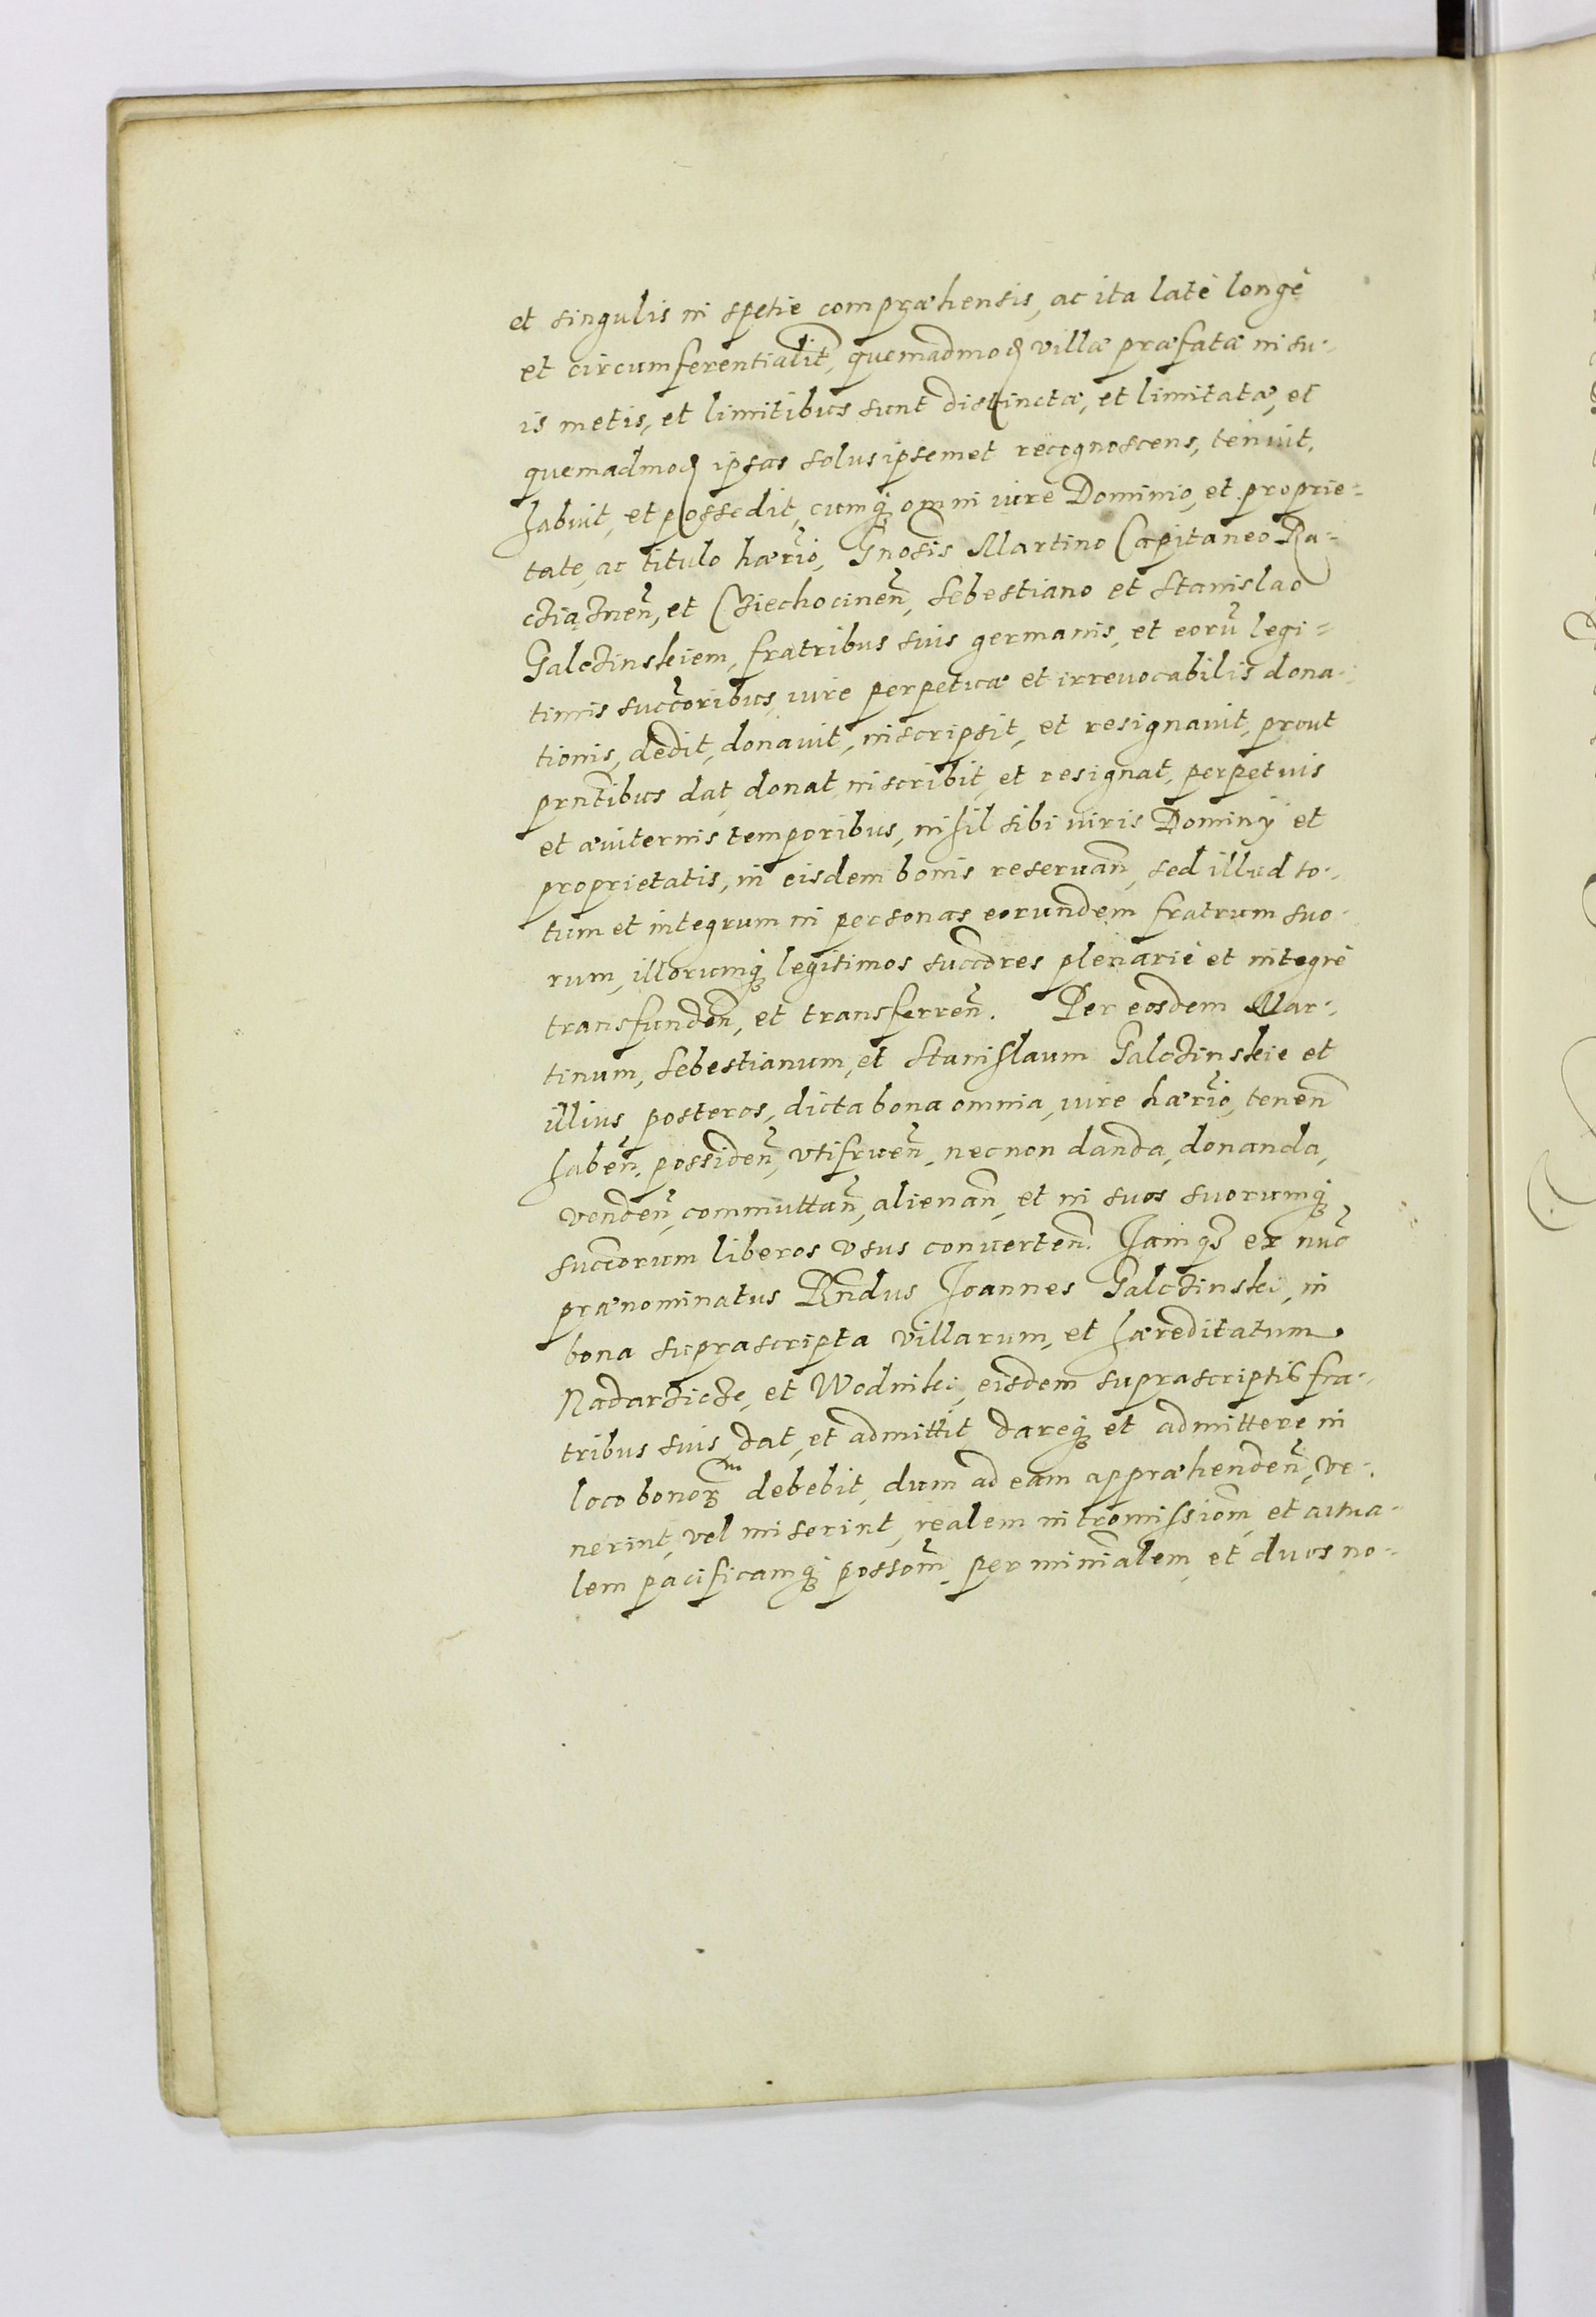 et singulis in spetie compræhensis, ac ita latè longè
et circumferentialit̃, quemadmoꝗ villæ præfatæ in su-
is metis, et limitibus sunt distinctæ, et limitatæ, et
quemadmoꝗ ipsas solus ipsemet recognoscens, tenuit,
habuit, et possedit, cumq́ꝫ omni iure Dominio, et proprie-
tate, ac titulo hær̃io, Gnosis Martino Capitaneo Ra-
cziąznen̄, et Cziechocinen̄, Sebestiano et Stanislao
Galczinskiem, fratribus suis germanis, et eorū legi-
timis succ̃oribus, iure perpetuæ et irreuocabilis dona-
tionis, dedit, donauit, inscripsit, et resignauit, prout
prñtibus dat, donat, inscribit, et resignat, perpetuis
et æuiternis temporibus, nihil sibi iuris Dominÿ et
proprietatis, in eisdem bonis reseruan̄, sed illud to-
tum et integrum in personas eorundem fratrum suo-
rum, illorumq́ꝫ legitimos succ̃ores plenariè et integrè
transfunden̄, et transferren̄. Per eosdem Mar-
tinum, Sebestianum, et Stanislaum Galczinskie et
illius posteros, dicta bona omnia, iure hær̃io, tenen̄
haben̄, possiden̄, vtifruen̄, necnon danda, donanda,
venden̄, commuttan̄, alienan̄, et in suos suorumq́ꝫ
succ̃orum liberos vsus conuerten̄. Iamqꝫ ex nūc
prænominatus Rn̄dus Joannes Galczinski, in
bona suprascripta villarum, et hæreditatum
Nadarzicze, et Wodniki, eisdem suprascriptis fra-
tribus suis dat, et admittit, dareq́ꝫ et admittere in
loco bonorꝫ debebit, dum ad eam appræhenden̄, ve-
nerint, vel miserint, realem intromissiom̄, et actua-
lem pacificamq́ꝫ possom̄, per minr̃alem, et duos no-